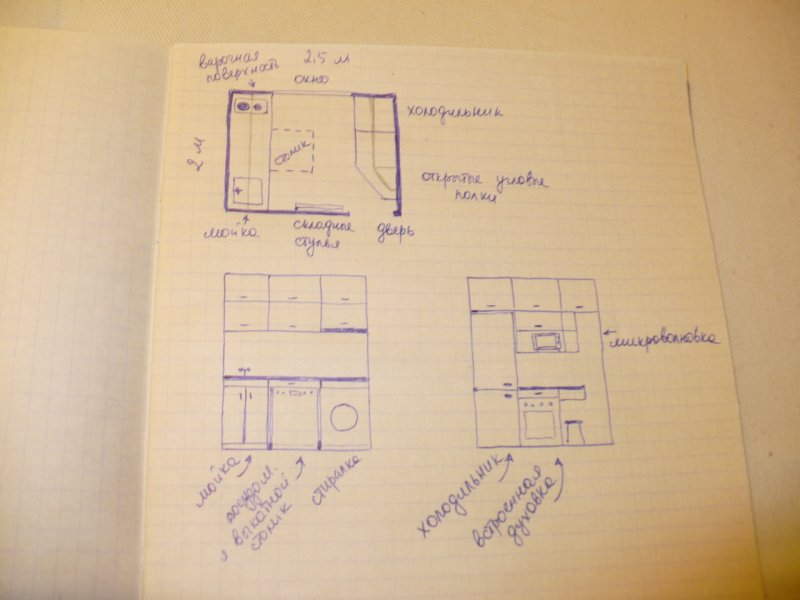 варочная
поверхность
2.5 м
окно
2 м
столик
холодильник
открытые угловые
полки
мойка
складные
стулья
дверь
микроволновка
мойка
посудом.
и выкатной
столик
стиралка
холодильник
встроенная
духовка